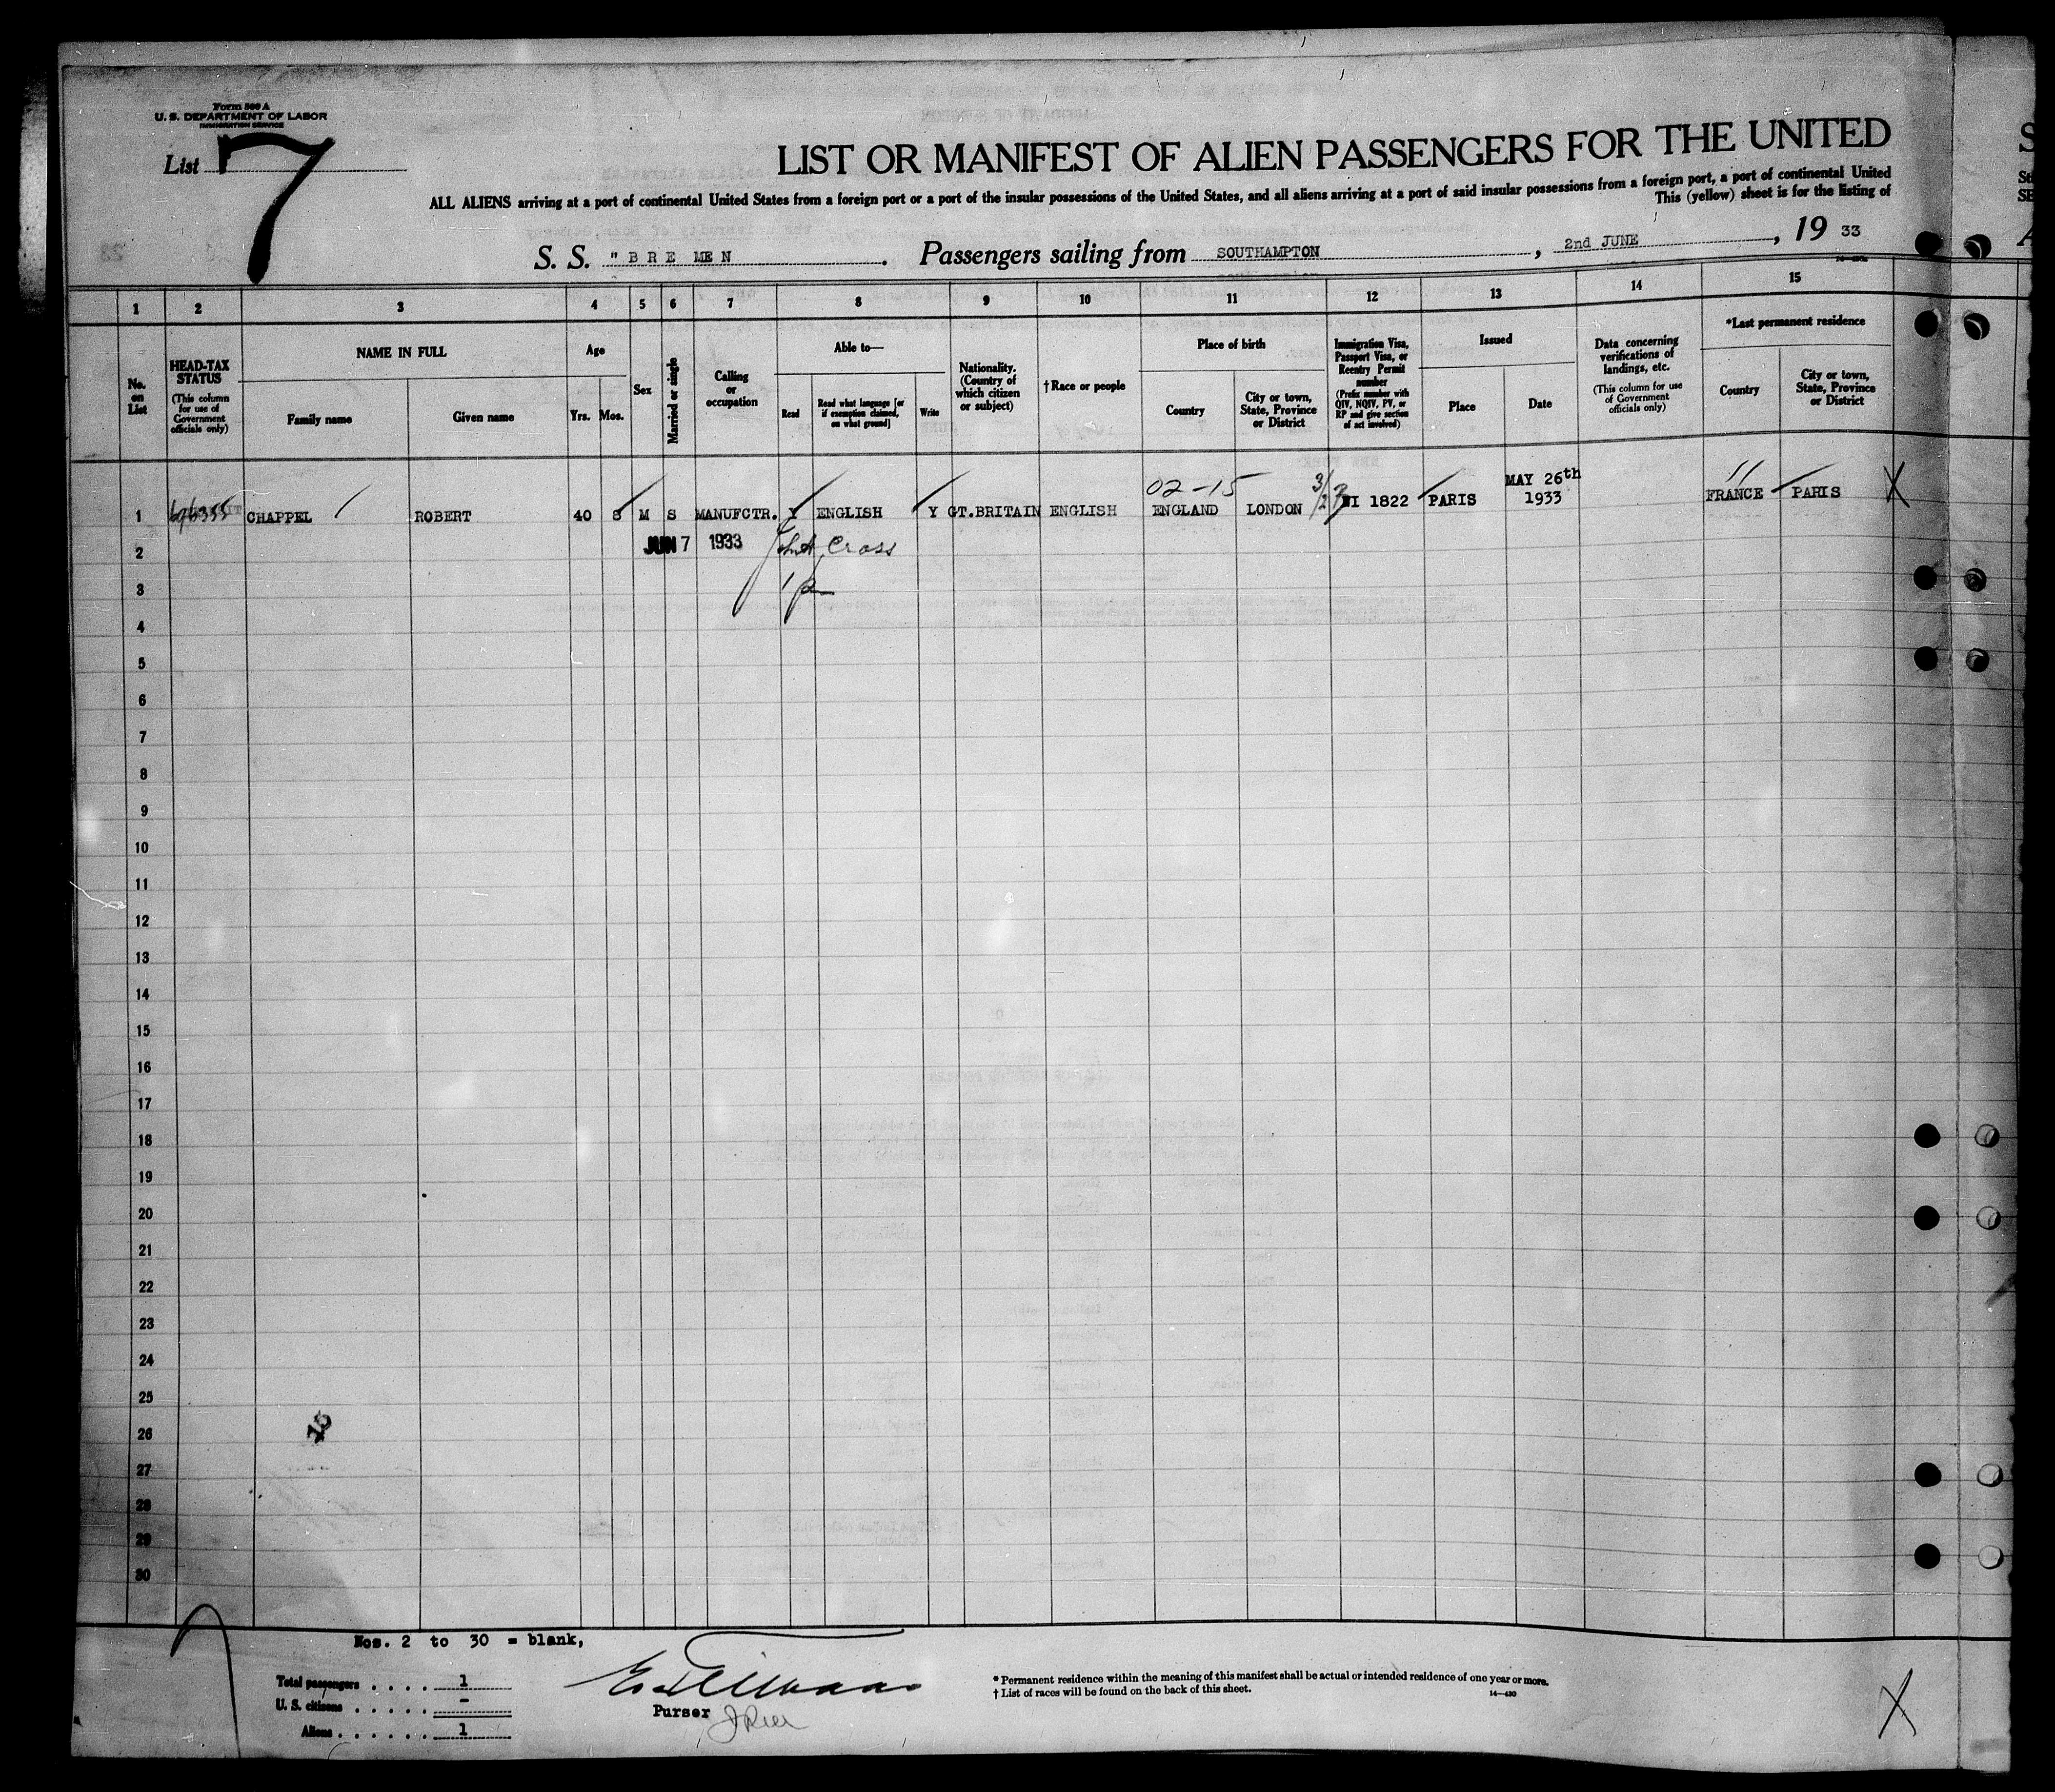 Form 500 A
U. S. DEPARTMENT OF LABOR
IMMIGRATION SERVICE
List 7
LIST OR MANIFEST OF ALIEN PASSENGERS FOR THE UNITED
ALL ALIENS arriving at a port of continental United States from a foreign port or a port of the insular possessions of the United States, and all aliens arriving at a port of said insular possessions from a foreign port, a port of continental United
This (yellow) sheet is for the listing of
S. S. "BREMEN . Passengers sailing from SOUTHAMPTON , 2nd JUNE , 19 33
1 2 3 4 5 6 7 8 9 10 11 12 13 14 15
No. on List
HEAD-TAX STATUS
(This column for use of Government officials only)
NAME IN FULL
Family name
Given name
Age
Yrs. Mos.
Sex
Married or single
Calling or occupation
Able to—
Read
Read what language [or if exemption claimed, on what ground]
Write
Nationality. (Country of which citizen or subject)
†Race or people
Place of birth
Country
City or town, State, Province or District
Immigration Visa, Passport Visa, or Reentry Permit number
(Prefix number with QIV, NQIV, PV, or RP and give section of act involved)
Issued
Place
Date
Data concerning verifications of landings, etc.
(This column for use of Government officials only)
*Last permanent residence
Country
City or town, State, Province or District
02-15
MAY 26th
1 CHAPPEL ROBERT 40 8 M S MANUFCTR. Y ENGLISH Y GT.BRITAIN ENGLISH ENGLAND LONDON 1822 PARIS 1933 FRANCE PARIS X
2 JUN 7 1933 Cross
3
4
5
6
7
8
9
10
11
12
13
14
15
16
17
18
19
20
21
22
23
24
25
26
27
28
29
30
Nos. 2 to 30 = blank,
Total passengers . . . . 1
U. S. citizens . . . . . -
Aliens . . . . . . 1
Purser
* Permanent residence within the meaning of this manifest shall be actual or intended residence of one year or more.
† List of races will be found on the back of this sheet.
14—430
X